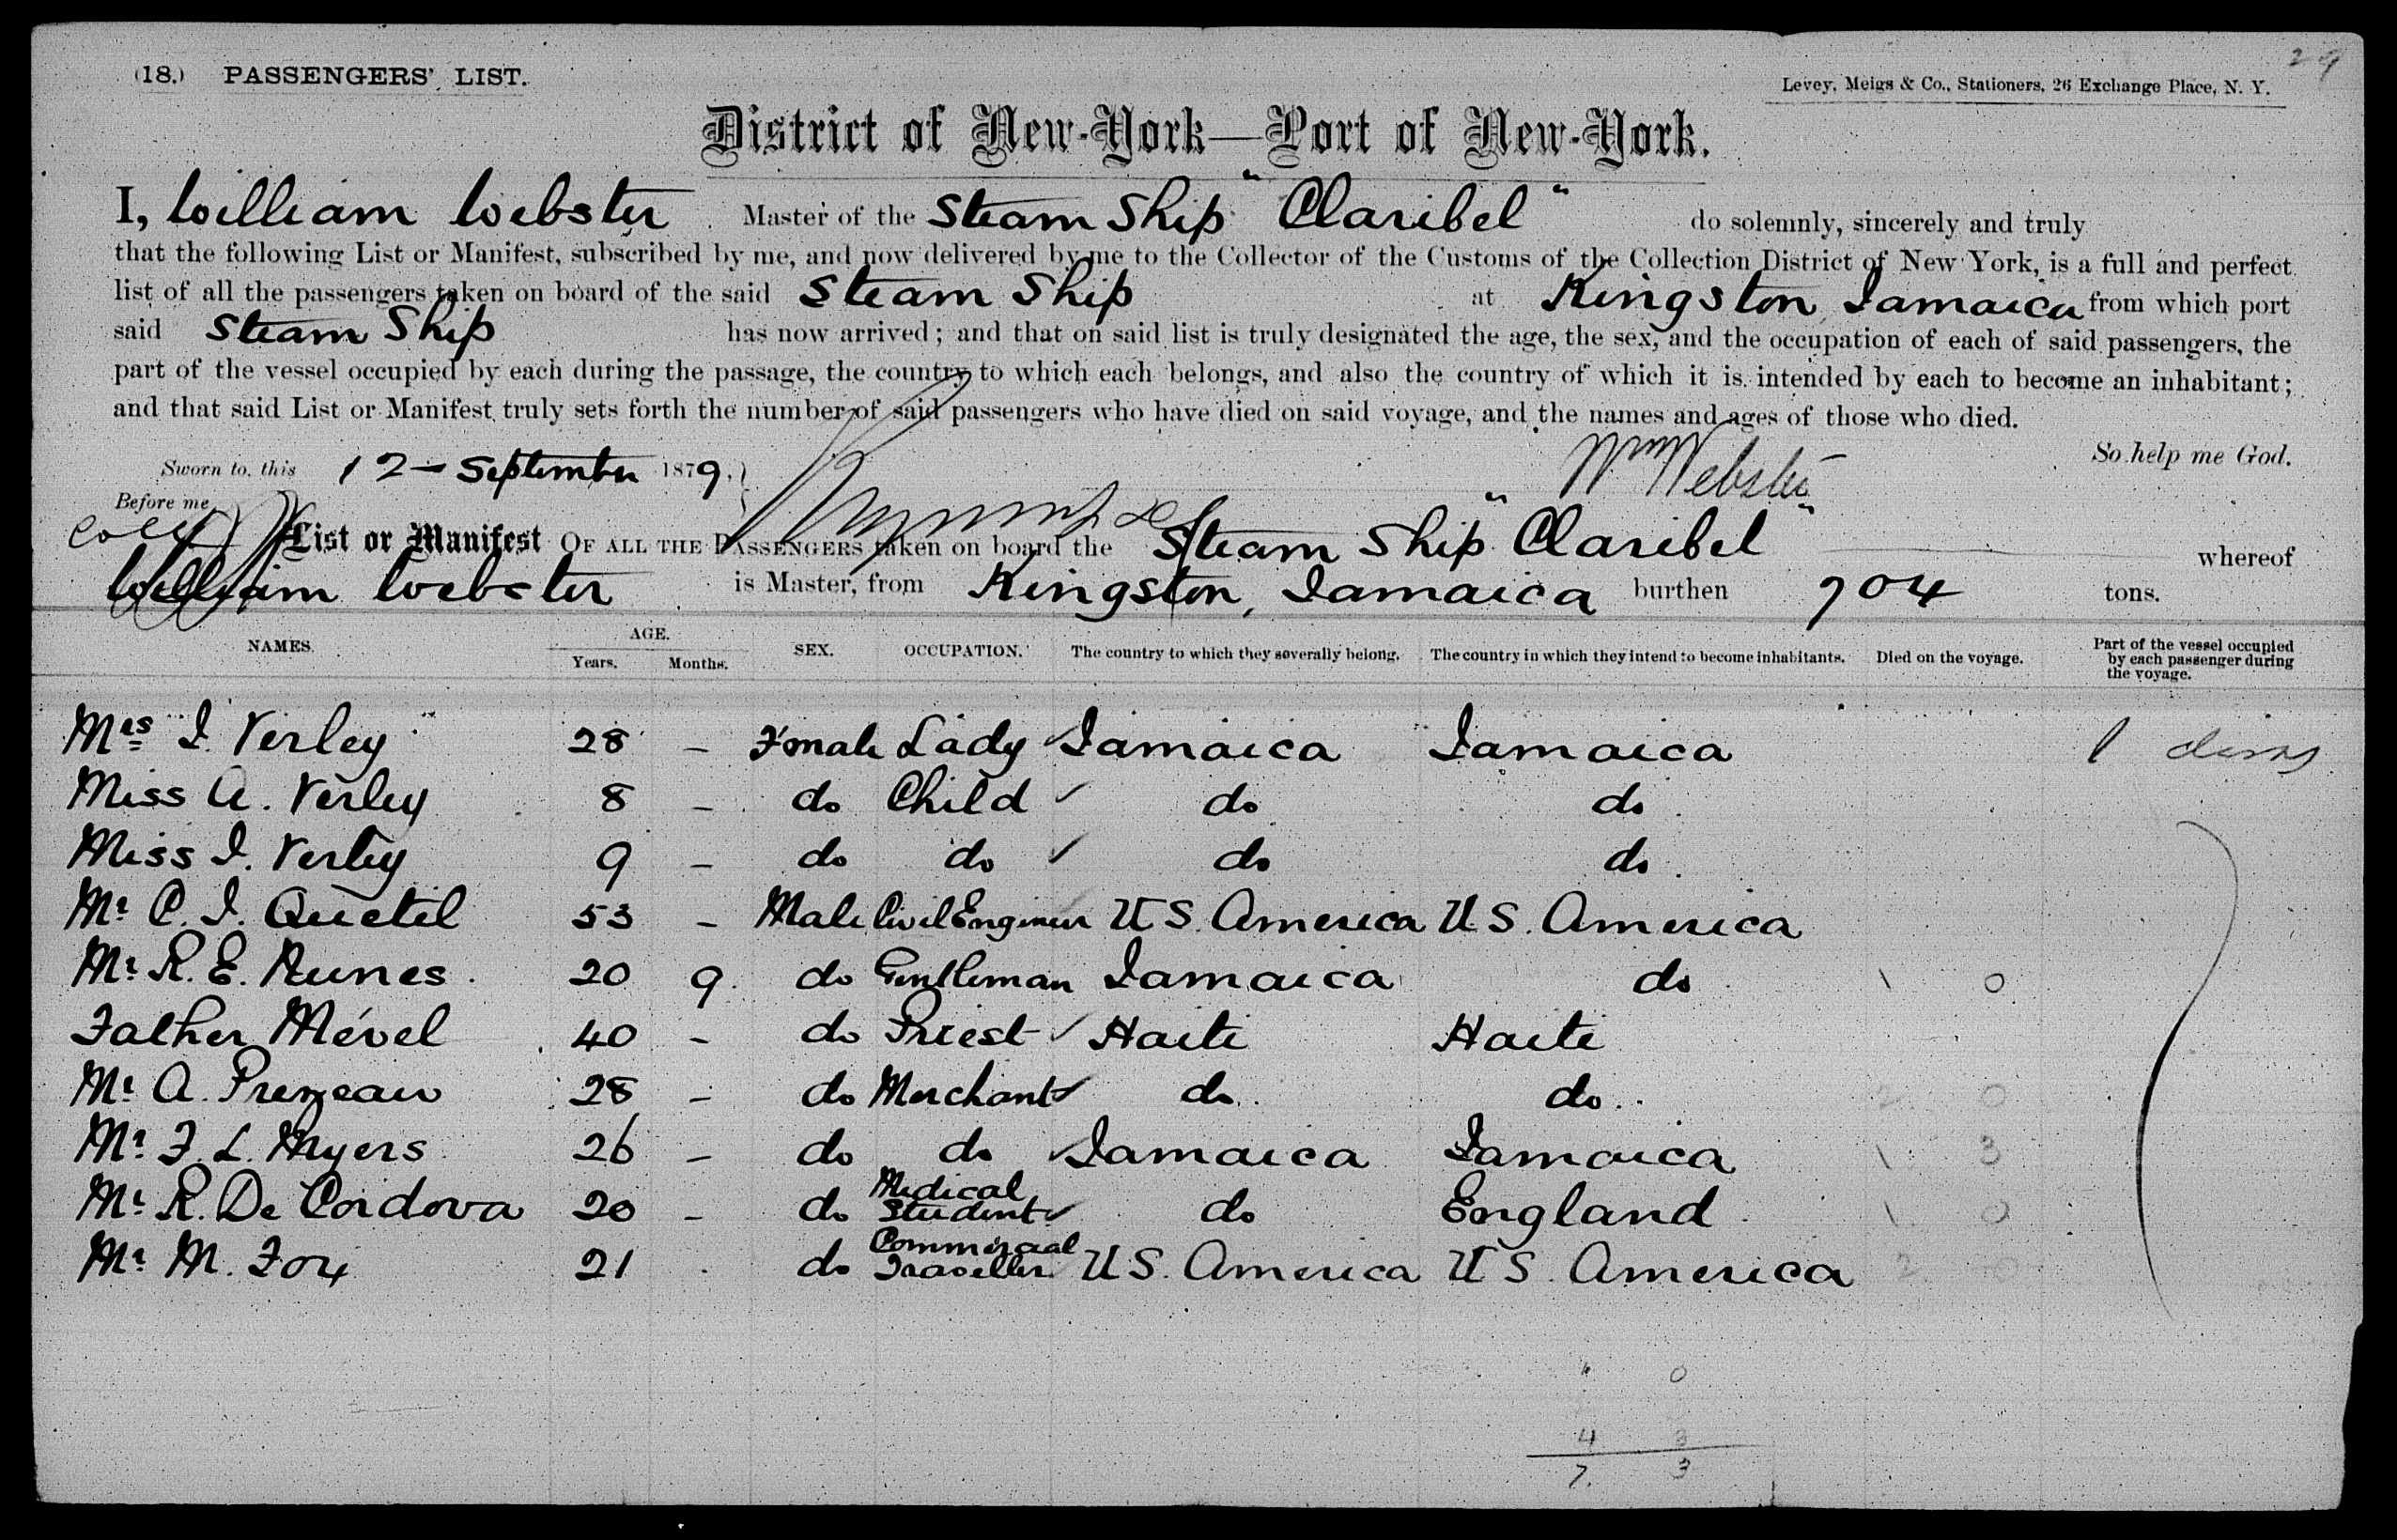 29
(18.) PASSENGERS' LIST.
Levey, Meigs & Co., Stationers, 26 Exchange Place, N. Y.
District of New-York—Port of New-York.
I, William Webster Master of the Steam Ship "Claribel" do solemnly, sincerely and truly
that the following List or Manifest, subscribed by me, and now delivered by me to the Collector of the Customs of the Collection District of New York, is a full and perfect
list of all the passengers taken on board of the said Steam Ship at Kingston, Jamaica from which port
said Steam Ship has now arrived; and that on said list is truly designated the age, the sex, and the occupation of each of said passengers, the
part of the vessel occupied by each during the passage, the country to which each belongs, and also the country of which it is intended by each to become an inhabitant;
and that said List or Manifest truly sets forth the number of said passengers who have died on said voyage, and the names and ages of those who died.
Sworn to, this 12 - September 1879. Wm Webster So help me God.
Before me
List or Manifest OF ALL THE PASSENGERS taken on board the Steam Ship "Claribel" whereof
William Webster is Master, from Kingston, Jamaica burthen 704 tons.
NAMES. AGE. Years. Months. SEX. OCCUPATION. The country to which they severally belong. The country in which they intend to become inhabitants. Died on the voyage. Part of the vessel occupied by each passenger during the voyage.
Mrs I. Verley 28 - Female Lady Jamaica Jamaica
Miss A. Verley 8 - do Child do do
Miss I. Verley 9 - do do do do
Mr C. I. Quetil 53 - Male Civil Engineer U S. America U.S. America
Mr R. E. Nunes 20 9 do Gentleman Jamaica do 1 0
Father Mével 40 - do Priest Haiti Haiti
Mr A. Prezeau 28 - do Merchant do do 2 0
Mr F. L. Myers 26 - do do Jamaica Jamaica 1 3
Mr R. De Cordova 20 - do Medical Student do England 1 0
Mr M. Fox 21 do Commercial Traveller U S. America U S. America 2
0
4 3
7. 3